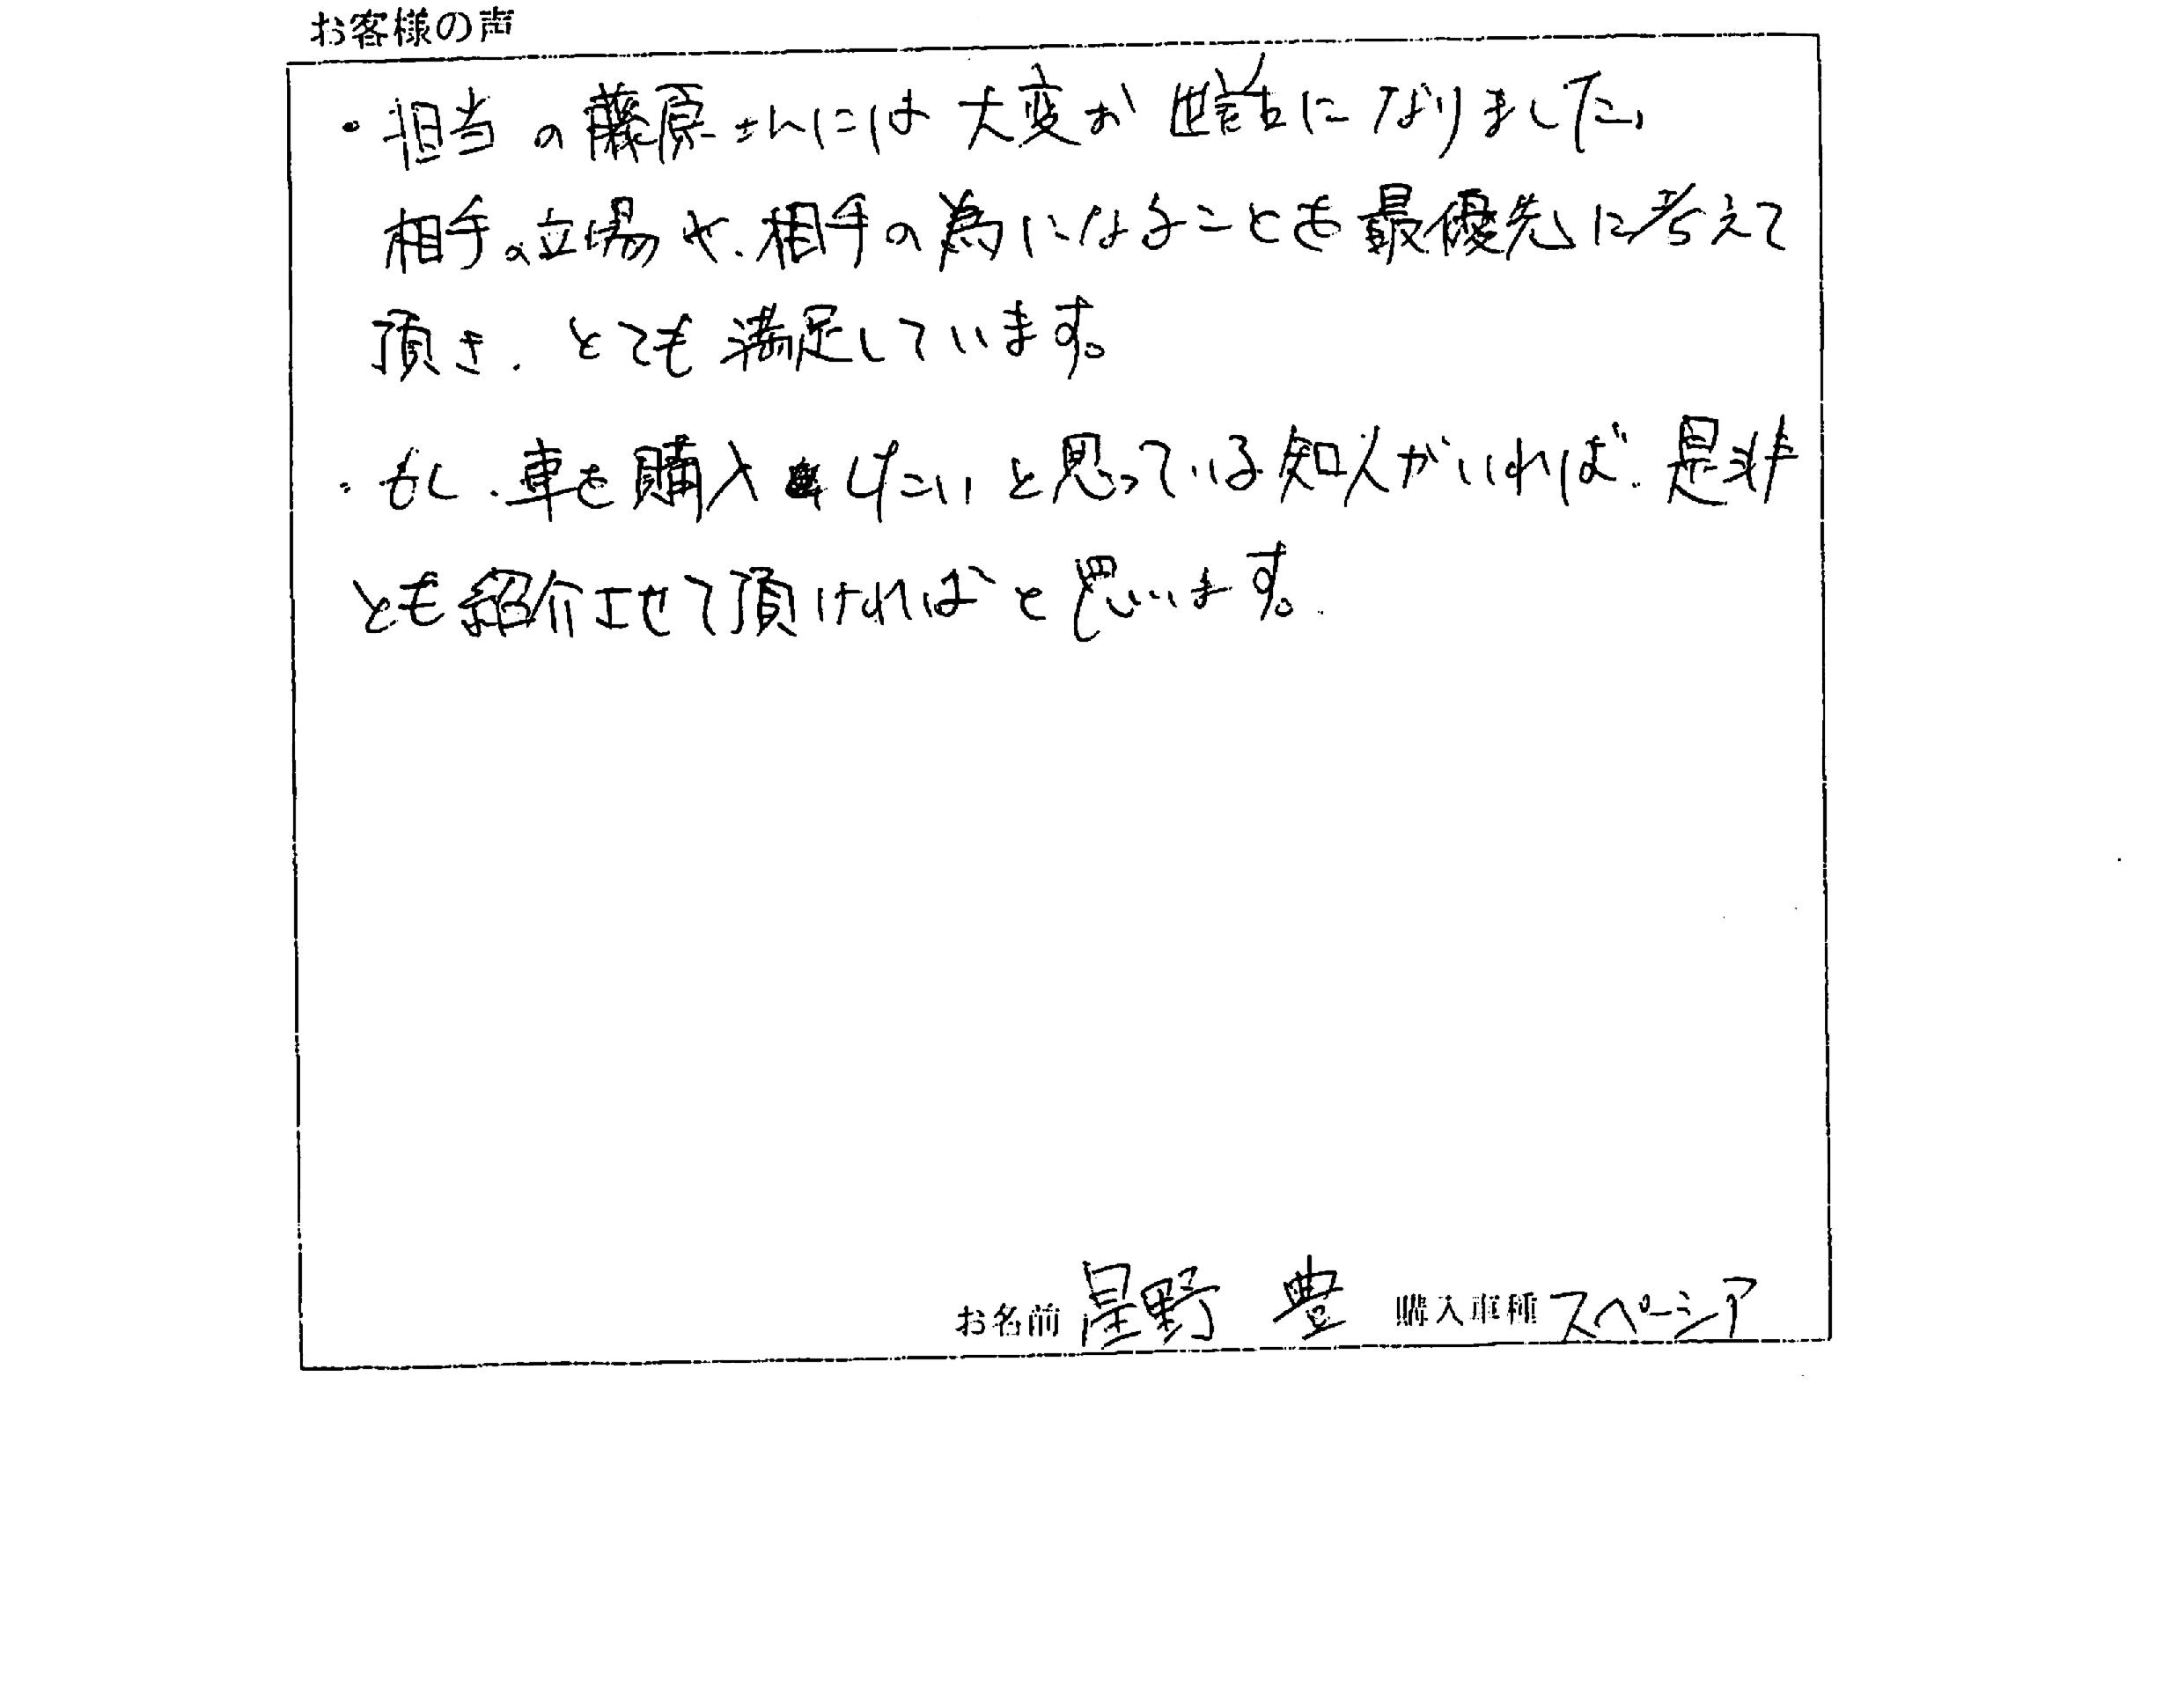 お客様の声
・担当の藤原さんには大変お世話になりました。
相手の立場や、相手の為になることを最優先に考えて
頂き、とても満足しています。
・もし、車を購入したいと思っている知人がいれば、是非
とも紹介させて頂ければと思います。
お名前 星野 豊 購入車種 スペーシア